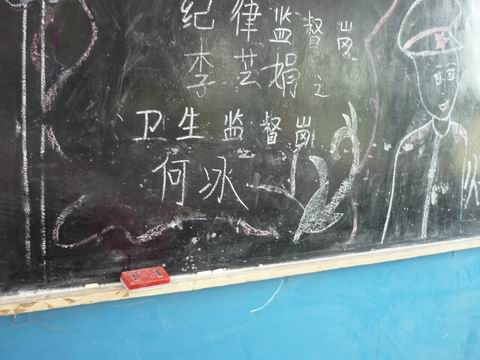 纪律监督岗
李芸娟之
卫生监督岗
何冰